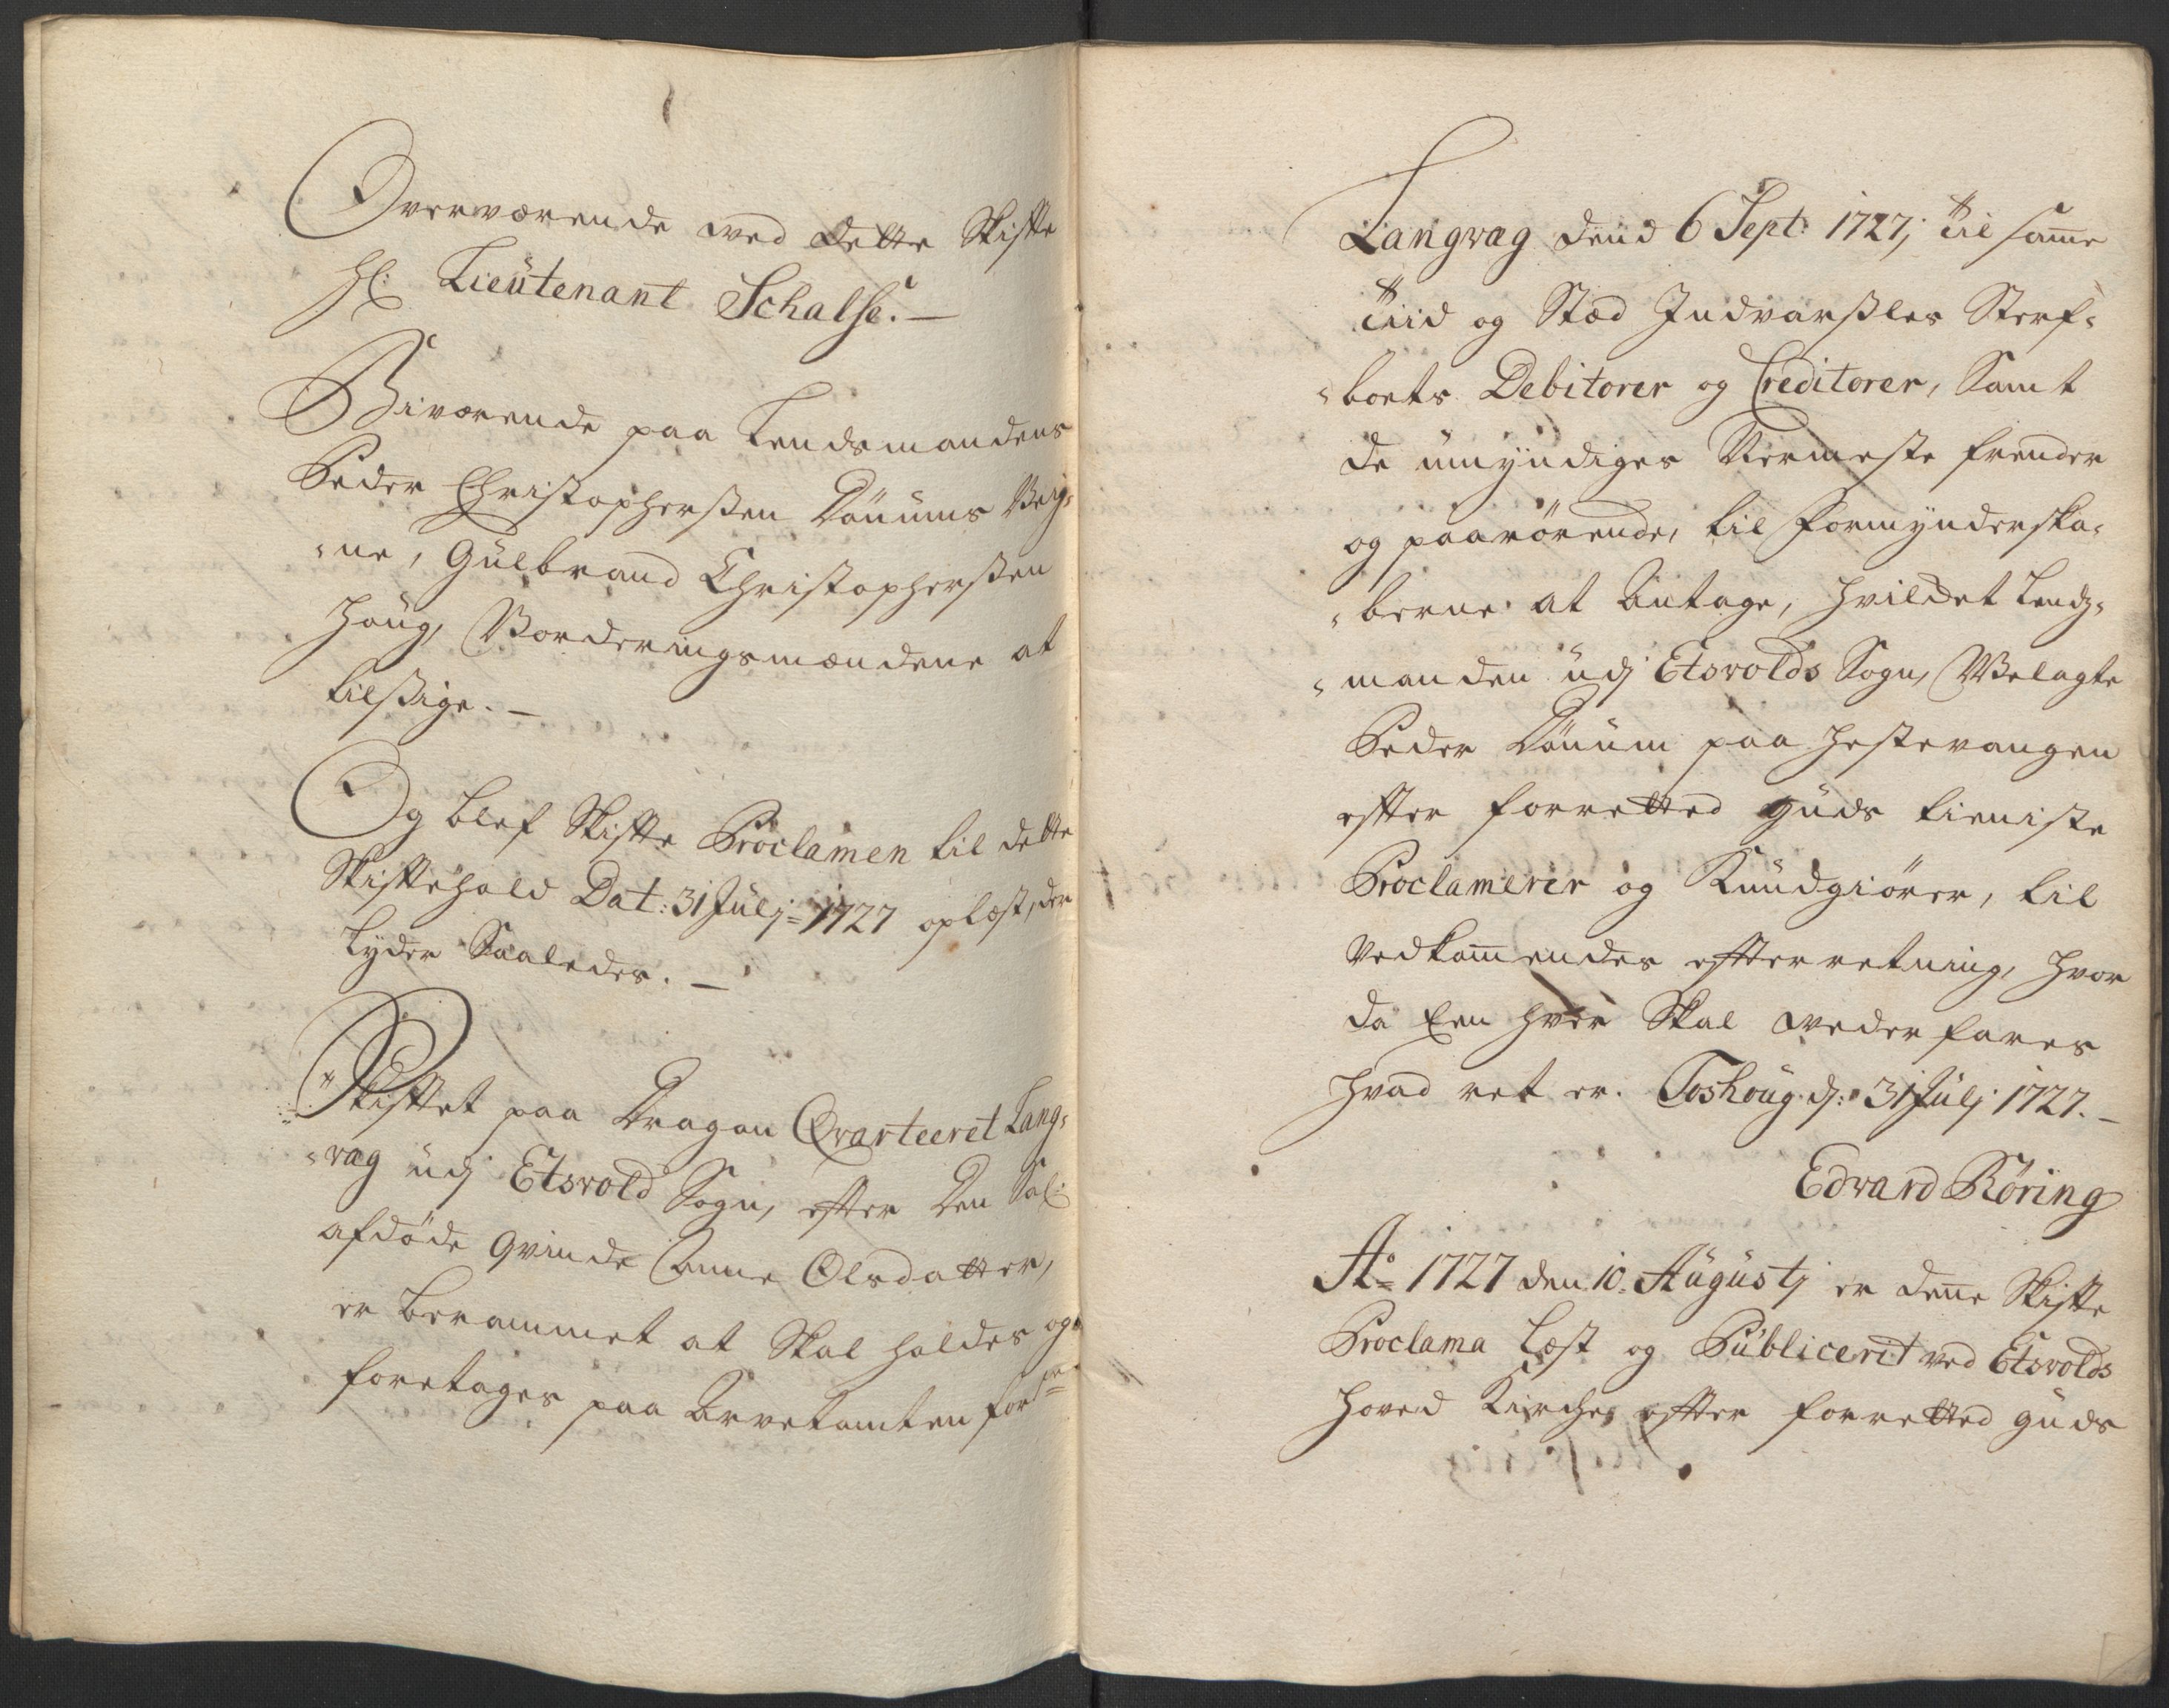 Overværende ved dette Skifte
Hl: Lieütenant Schalse. —
Biværende paa Lendsmandens
Peder Christophersßen Dönnüms Veig¬
ne, Gülbrand Christophersßen
Houg, Vorderingsmændene at
tilsige. —
Og blef Skifte Proclamen til dette
Skiftehold Dat: 31 Julj 1727 oplæst, der
lyder Saaledes. —
Skiftet paa Dragon Qvarteeret Lang¬
vag üdj Etsvold Sogn, efter den Sal:
afdöde qvinde Anne Olsdatter,
er berammet at Skal holdes og
foretages paa Arvetomten for
Langvag dend 6 Sept: 1727, til samme
tiid og Stæd Indvarsles Sterf¬
boets Debitorer og Creditorer, Samt
de ümÿndiges Nermeste frender
og paarörende, til formÿnderska¬
berne at Antage, hvilcket Lends¬
manden üdj Etsvolds Sogn, Velagte
Peder Dönnüm paa Hestevangen
efter forretted güds tieniste
Proclamerer og Kündgiörer, til
Vedkommendes efterretning, hvor
da Een hver Skal vederfares
hvad ret er. Toshoüg d: 31 Julj 1727. —
Edvard Röring
Ao 1727 den 10. Aügüstj er denne Skifte
Proclama Læst og Publicerit ved Etsvolds
Hoved Kirche, efter forretted güds